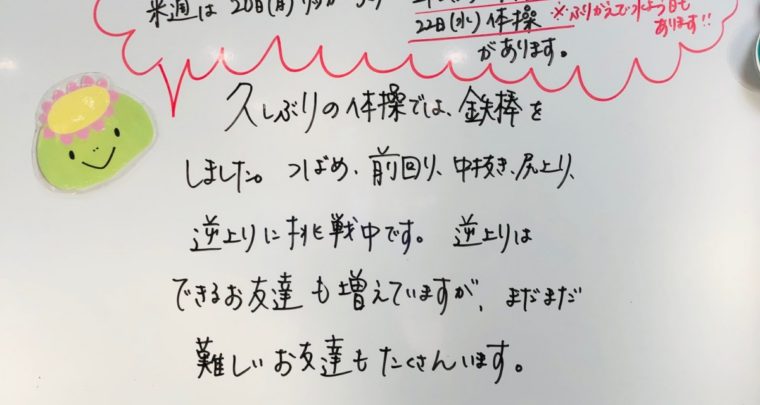 来週は20日(月)
22日(水)体操 ※ふりかえで水よう日も
があります。 あります!!
久しぶりの体操では、鉄棒を
しました。つばめ、前回り、中抜き、尻上り、
逆上りに挑戦中です。逆上りは
できるお友達も増えていますが、まだまだ
難しいお友達もたくさんいます。